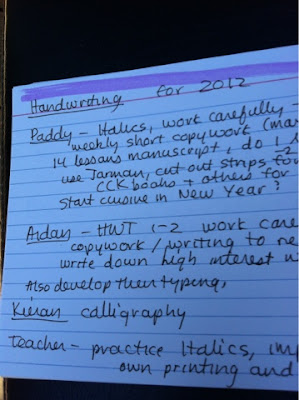 Handwriting for 2012
Paddy - Italics, work carefully -
weekly short copywork (mar
14 lessons manuscript, do 1
use Jarman, cut out strips for
CCK books + others for
start cursive in New Year?
Aidan - HWT 1-2 work care
copywork / writing to ne
write down high interest w
Also develop their typing,
Kieran calligraphy
Teacher - practice Italics, imp
own printing and